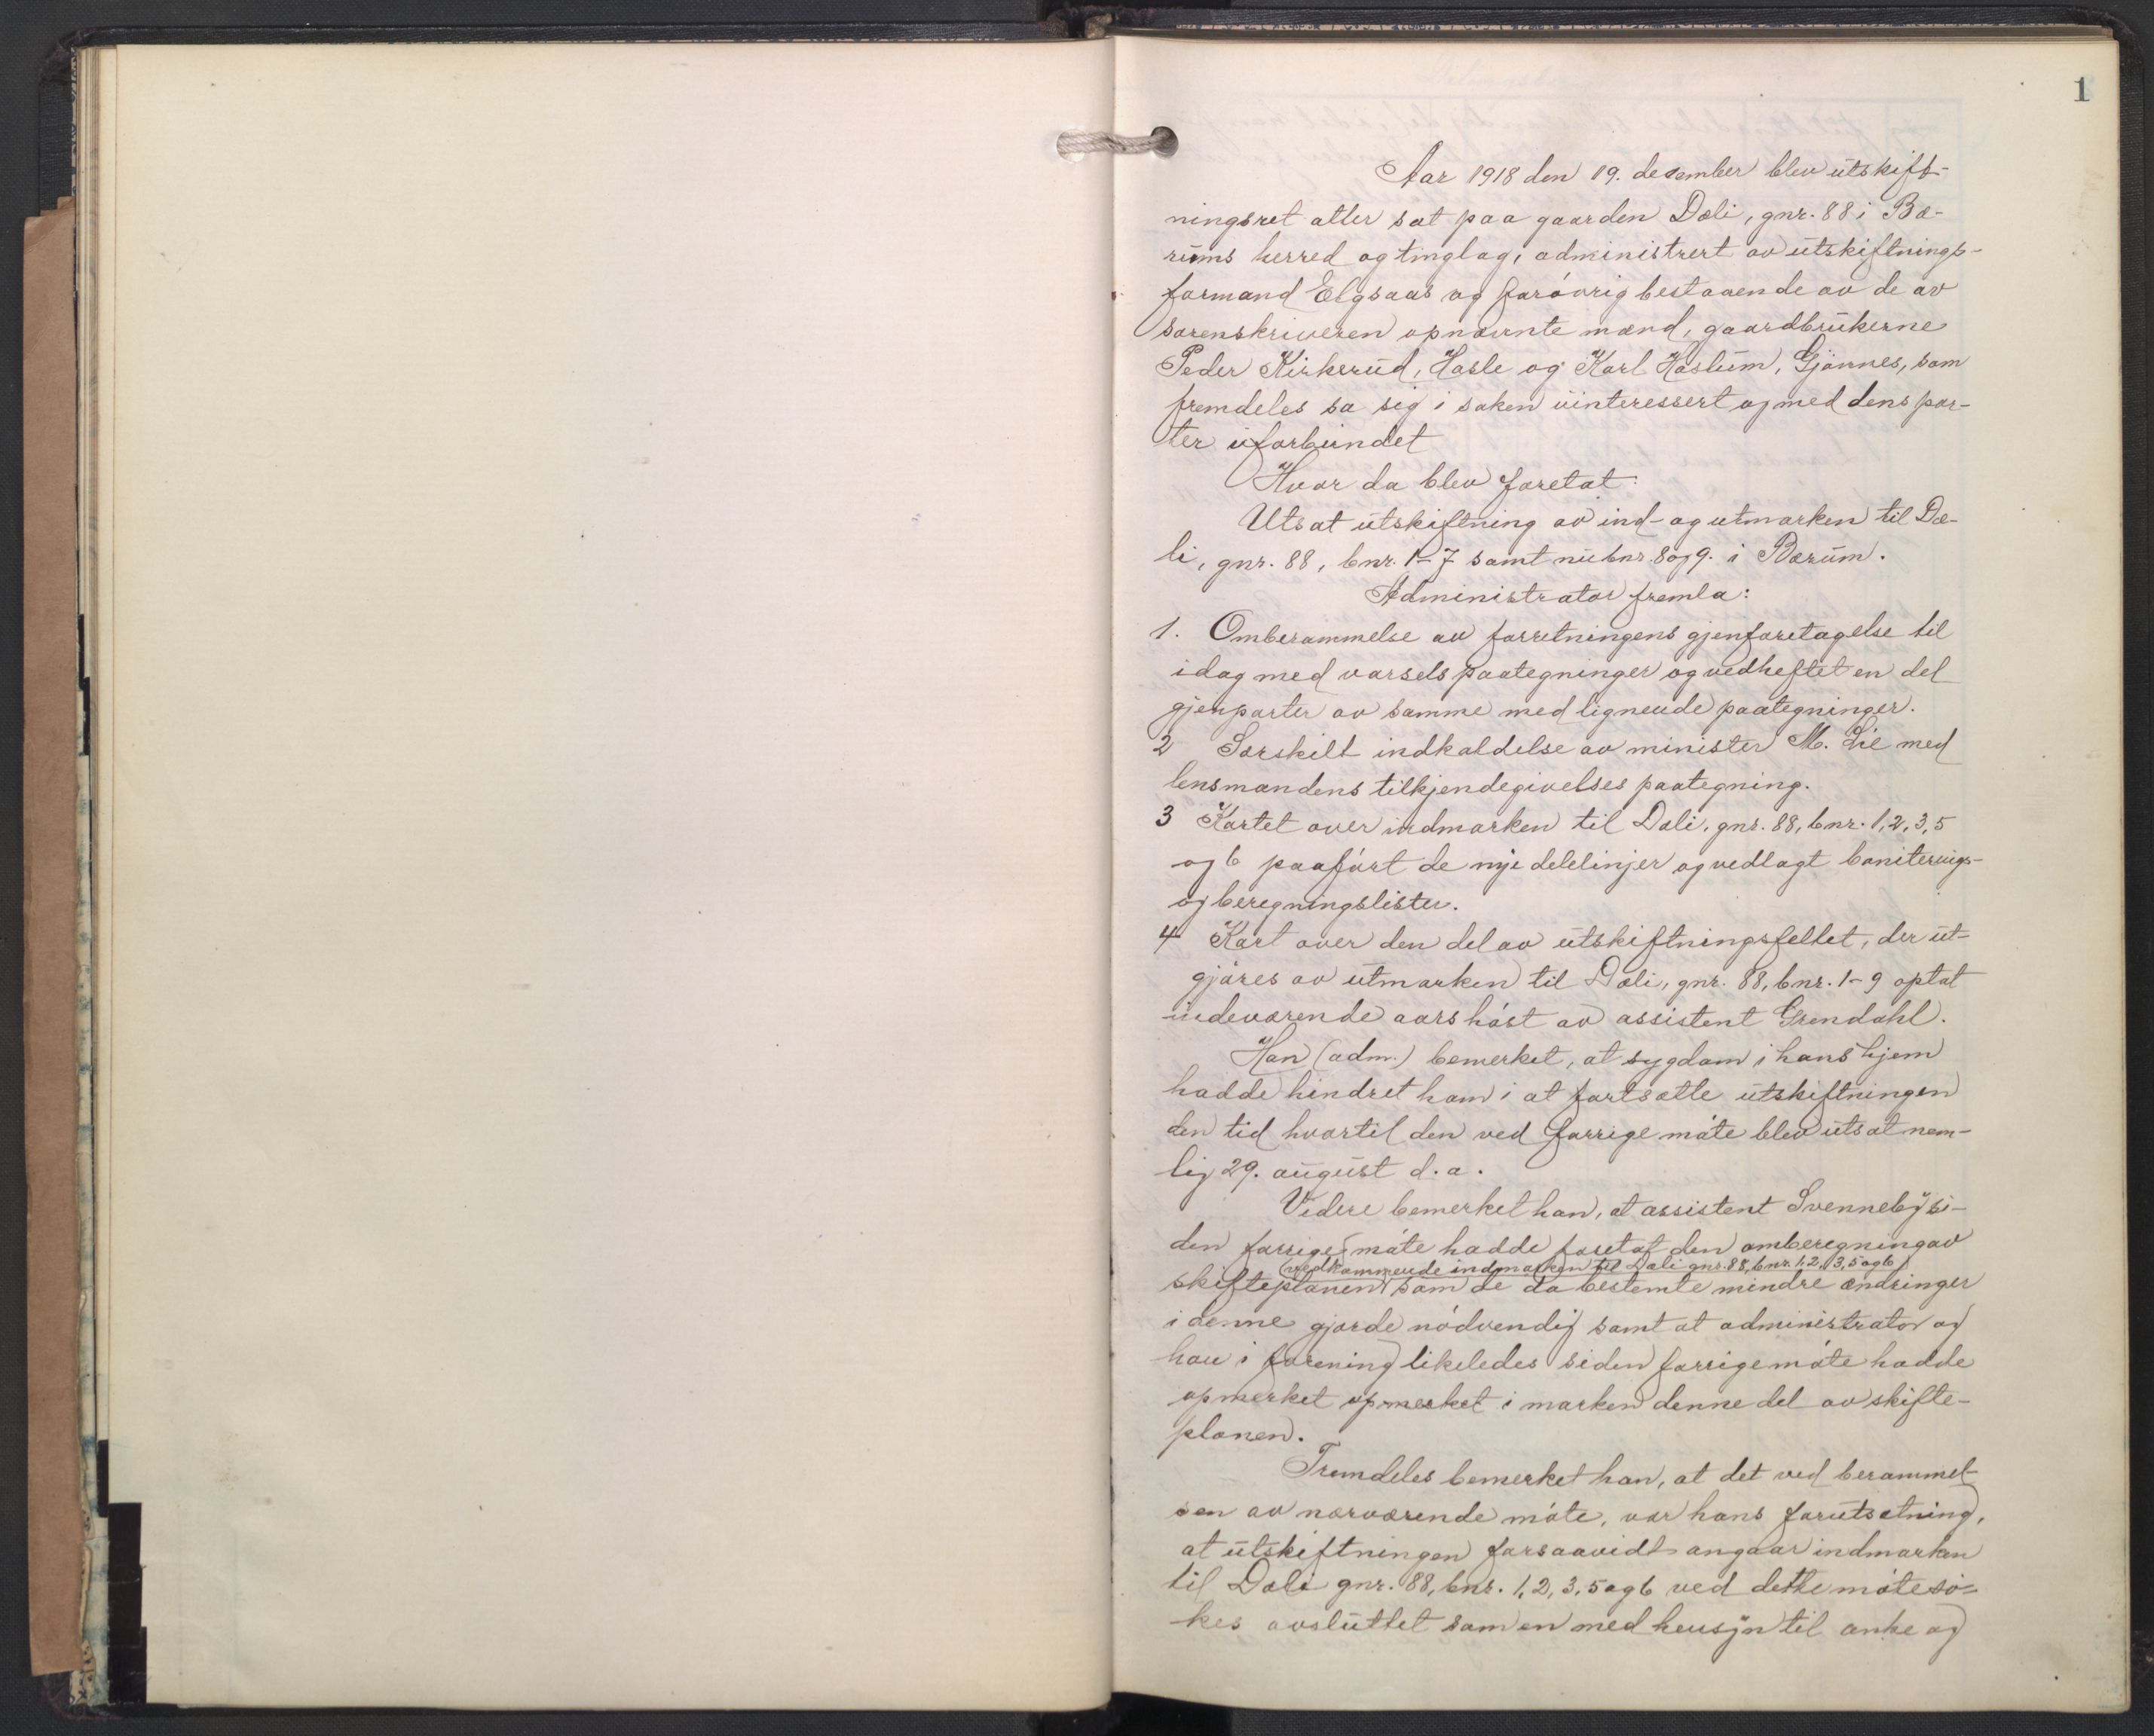 1
Aar 1918 den 19. desember blev utskift-
ningsret atter sat paa gaarden Dæli, gnr. 88 i Bæ-
rums herred og tinglag, administrert av utskiftnings-
formand Elgsaas og forøvrig bestaaende av de av
sorenskriveren opnævnte mænd, gaardbrukerne
Peder Kirkerud, Hasle og Karl Haslum, Gjønnes, som
fremdeles sa sig i saken uinteressert og med dens par-
ter uforbundet
Hvor da blev foretat:
Utsat utskiftning av ind- og utmarken til Dæ-
li, gnr. 88, bnr. 1-7 samt nu bnr. 8 og 9. i Bærum.
Administrator fremla:
1. Omberammelse av forretningens gjenforetagelse til
idag med varselspaategninger og vedheftet en del
gjenparter av samme med lignende paategninger.
2 Særskilt indkaldelse av minister M. Lie med
lensmandens tilkjendegivelses paategning.
3 Kartet over indmarken til Dæli, gnr. 88, bnr. 1, 2, 3, 5
og 6 paaført de nye delelinjer og vedlagt boniterings-
og beregningslister.
4 Kart over den del av utskiftningsfeltet, der ut-
gjøres av utmarken til Dæli, gnr. 88, bnr. 1-9 optat
indeværende aars høst av assistent Grendahl.
Han (adm.) bemerket, at sygdom i hans hjem
hadde hindret ham i at fortsætte utskiftningen
den tid hvortil den ved forrige møte blev utsat nem-
lig 29. august d. a.
Videre bemerket han, at assistent Svenneby si-
den forrige møte hadde foretat den omberegning av
vedkommende indmarken til Dæli gnr. 88, bnr. 1, 2, 3, 5 og 6
skifteplanen som de da bestemte mindre ændringer
i denne gjorde nødvendig samt at administrator og
han i forening likeledes siden forrige møte hadde
opmerket opmerket i marken denne del av skifte-
planen.
Fremdeles bemerket han, at det ved berammel-
sen av nærværende møte, var hans forutsetning,
at utskiftningen forsaavidt angaar indmarken
til Dæli gnr. 88, bnr. 1, 2, 3, 5 og 6 ved dette møte sø-
kes avsluttet som en med hensyn til anke og